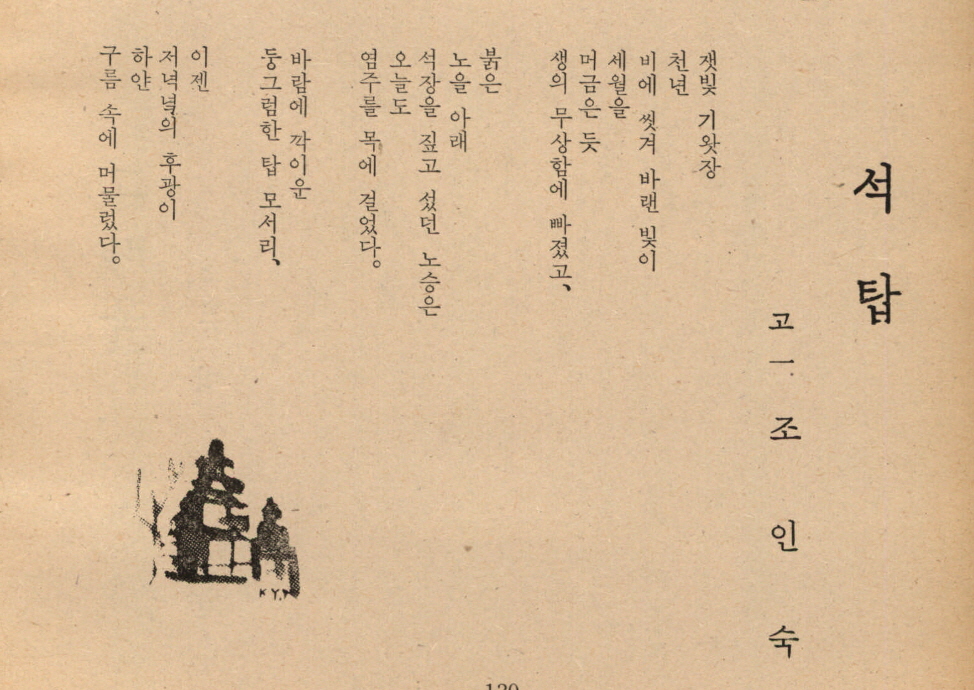 석탑
고一. 조인숙
잿빛 기왓장
천년
비에 씻겨 바랜 빛이
세월을
머금은 듯
생의 무상함에 빠졌고、
붉은
노을 아래
석장을 짚고 섰던 노승은
오늘도
염주를 목에 걸었다。
바람에 깍이운
둥그럼한 탑 모서리、
이젠
저녁녘의 후광이
하얀
구름 속에 머물렀다。
KYP
120